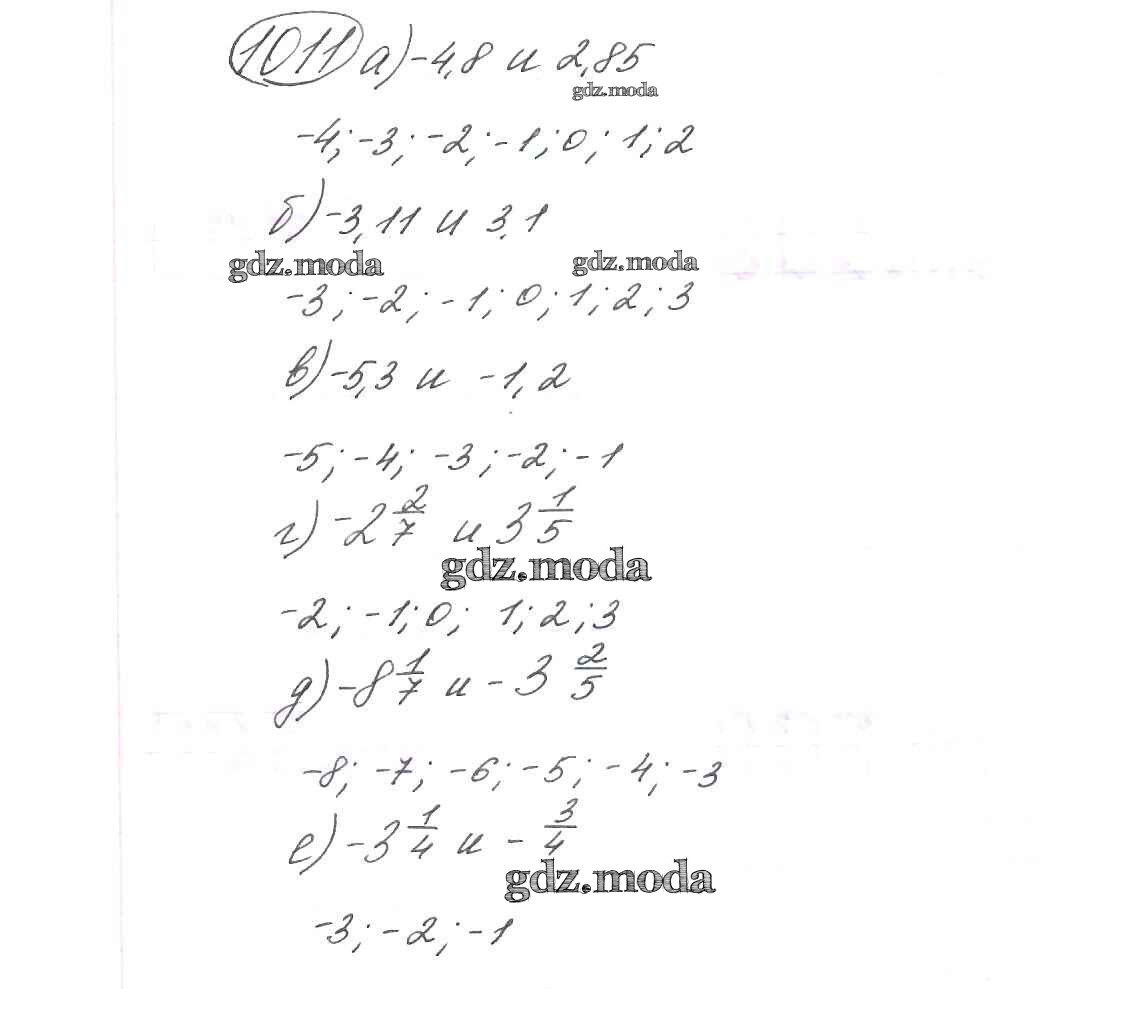 1011 а) -4,8 и 2,85
gdz.moda
-4; -3; -2; -1; 0; 1; 2
б) -3,11 и 3,1
gdz.moda gdz.moda
-3; -2; -1; 0; 1; 2; 3
в) -5,3 и -1,2
-5; -4; -3; -2; -1
г) -2 2/7 и 3 1/5
gdz.moda
-2; -1; 0; 1; 2; 3
д) -8 1/7 и -3 2/5
-8; -7; -6; -5; -4; -3
е) -3 1/4 и - 3/4
gdz.moda
-3; -2; -1